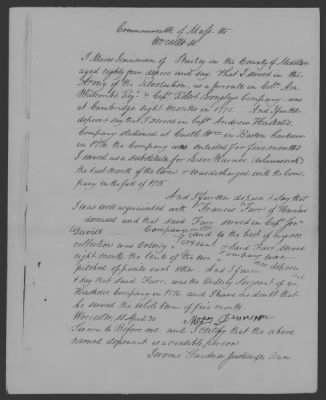 Commonwealth of Mass. tts
Worcester ss
I Moses Jennerson of in the County of Middlesex
aged eighty four depose and say. That I served in the
Army of the Revolution, as a private in Col. Asa
Whitcombs Regt. & Capt Robt Longleys Company. was
at Cambridge Eight Months in 1775. And I further
depose & say that I served in Capt Andrew Haskells
Company stationed at Castle in Boston harbour
in 1776 the Company was enlisted for five months
I served as a substitute for Levi Warner
the last month of the time & was discharged with the com-
pany in the fall of 1776.
And I further depose & say that
I was well acquainted with Francis Farr of Harvard
deceased and that said Farr served in Capt. Jona
Davis Company in 1775 and to the best of my re-
collection was Orderly Sergeant & said Farr served
eight months the tents of the two Company were
pitched opposite each other. And I further depose
& say that said Farr, was the Orderly Sergeant of in
Haskells Company in 1776 and I have no doubt that
he served the whole term of five months
Worcester, ss April 30 Moses Jennerson
Sworn to Before me. and I certify that the above
named deponent is a credible person.
Jerome Gardner Justice of the Peace